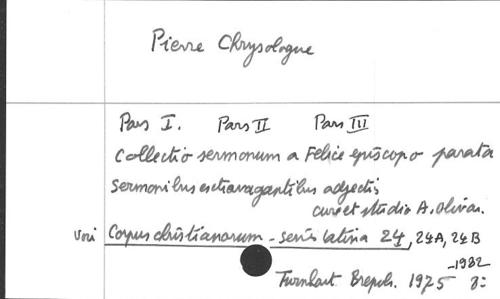 Pierre Chrysologue
Pars I. Pars II Pars III
Collectio sermonum a Felice episcopo parata
sermonibus extravagantibus adjectis
cura et studio A. Olivar.
Voir Corpus christianorum - series latina 24, 24A, 24B
Turnhout Brepols. 1975 -1982 8°